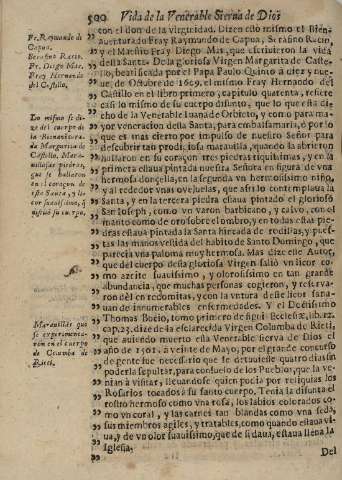 590 Vida de la Venerable Sierva de Dios
Fr. Raymundo de
Capua.
Serafino Racio.
Fr. Diego Mas.
Fray Hernando
del Castillo.
Lo mismo se di-
ze del cuerpo de
la Bienaventura-
da Margarita de
Castello, Mara-
villosas piedras,
que se hallaron
en el coraçon de
esta Santa, y li-
cor suavissimo, q
destilò su cuerpo.
Maravillas que
se experimenta-
ron en el cuerpo
de Columba de
Rieti.
con el don de la virginidad. Dizen esto mismo el Bien-
aventurado Fray Raymundo de Capua, Serafino Racio,
y el Maestro Fray Diego Mas, que escrivieron la vida
desta Santa. De la gloriosa Virgen Margarita de Caste-
llo, beatificada por el Papa Paulo Quinto à diez y nue-
ue, de Octubre de 1609. el mismo Fray Hernando del
Castillo en el libro primero, capitulo quarenta, refiere
casi lo mismo de su cuerpo difunto, que lo que està di-
cho de la Venerable Luana de Orbieto, y como para ma-
yor veneracion desta Santa, para embalsamarla, ò por lo
que es mas cierto por impulso de nuestro Señor para
descubrir tan prodigiosa maravilla, quando la abrieron
hallaron en su coraçon tres piedras riquissimas, y en la
primera estaua pintada nuestra Señora en figura de vna
hermosa donçella, en la segunda vn hermosissimo niño,
y al rededor vnas ovejuelas, que assi lo contemplaua la
Santa, y en la tercera piedra estaua pintado el glorioso
San Ioseph, como vn varon barbicano, y calvo, con el
manto como de oro sobre el hombro, y en todas estas pie-
dras estaua pintada la Santa hincada de rodillas, y pues-
tas las manos vestida del habito de Santo Domingo, que
parecia vna paloma muy hermosa. Mas dize este Autor,
que del cuerpo desta gloriosa Virgen saliò vn licor co-
mo azeite suauissimo, y olorosissimo en tan grande
abundancia, que muchas personas cogieron, y reserva-
ron dèl en redomitas, y con la vntura deste licor sana-
uan de innumerables enfermedades. Y el Doctissimo
Thomas Bocio, tomo primero de signis Ecclesiæ, lib. 12.
cap. 23. dize de la esclarecida Virgen Columba de Rieti,
que auiendo muerto esta Venerable sierva de Dios el
año de 1501. à veinte de Mayo, por el grande concurso
de gente fue necessario que se detuuiesse quatro dias sin
poderla sepultar, para consuelo de los Pueblos, que la ve-
nian à visitar, lleuandose quien podia por reliquias los
Rosarios tocados à su santo cuerpo. Tenia la difunta el
rostro hermoso como vna rosa, los labios colorados co-
mo vn coral, y las carnes tan blandas como vna seda,
sus miembros agiles, y tratables, como quando estaua vi-
ua, y de vn olor suauissimo, que de sì daua, estaua llena la
Iglesia.
Del